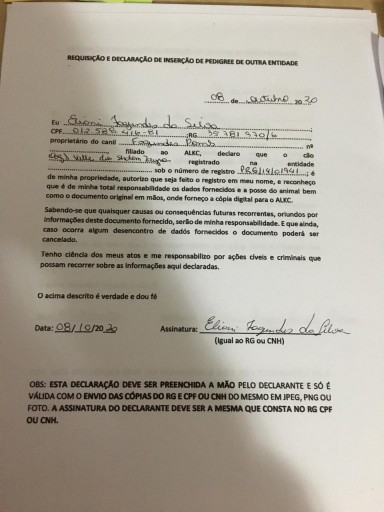 REQUISIÇÃO E DECLARAÇÃO DE INSERÇÃO DE PEDIGREE DE OUTRA ENTIDADE
08 de outubro 2020
Eu Elioni Fagundes da Silva
CPF RG
proprietário do canil Fagundes nº
filiado ao ALKC, declaro que o cão
registrado na entidade
sob o número de registro ; é
de minha propriedade, autorizo que seja feito o registro em meu nome, e reconheço
que é de minha total responsabilidade os dados fornecidos e a posse do animal bem
como o documento original em mãos, onde forneço a cópia digital para o ALKC.
Sabendo-se que quaisquer causas ou consequências futuras recorrentes, oriundos por
informações deste documento fornecido, serão de minha responsabilidade. E que ainda,
caso ocorra algum desencontro de dados fornecidos o documento poderá ser
cancelado.
Tenho ciência dos meus atos e me responsabilizo por ações cíveis e criminais que
possam recorrer sobre as informações aqui declaradas.
O acima descrito é verdade e dou fé
Data: 08/10/2020 Assinatura: Elioni Fagundes da Silva
(Igual ao RG ou CNH)
OBS: ESTA DECLARAÇÃO DEVE SER PREENCHIDA A MÃO PELO DECLARANTE E SÓ É
VÁLIDA COM O ENVIO DAS CÓPIAS DO RG E CPF OU CNH DO MESMO EM JPEG, PNG OU
FOTO. A ASSINATURA DO DECLARANTE DEVE SER A MESMA QUE CONSTA NO RG CPF
OU CNH.